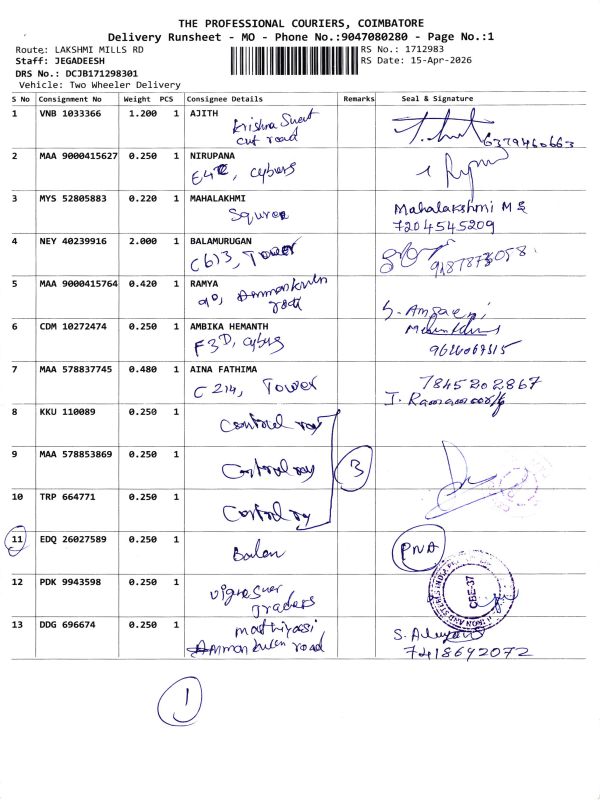 THE PROFESSIONAL COURIERS, COIMBATORE
Delivery Runsheet - MO - Phone No.:9047080280 - Page No.:1
Route: LAKSHMI MILLS RD
RS No.: 1712983
Staff: JEGADEESH
RS Date: 15-Apr-2026
DRS No.: DCJB171298301
Vehicle: Two Wheeler Delivery
S No Consignment No Weight PCS Consignee Details Remarks Seal & Signature
1 VNB 1033366 1.200 1 AJITH
Krishna Sweet
cut road
6379460663
2 MAA 9000415627 0.250 1 NIRUPANA
E4E, cybers
3 MYS 52805883 0.220 1 MAHALAKHMI
Squree
Mahalakshmi M S
7204545209
4 NEY 40239916 2.000 1 BALAMURUGAN
C613, Tower
9187873058
5 MAA 9000415764 0.420 1 RAMYA
90, Ammankulm
road
6 CDM 10272474 0.250 1 AMBIKA HEMANTH
F3D, cybers
9626067515
7 MAA 578837745 0.480 1 AINA FATHIMA
C 214, Tower
7845202867
8 KKU 110089 0.250 1
Control ray
9 MAA 578853869 0.250 1
Control ray
3
10 TRP 664771 0.250 1
Control ray
11 EDQ 26027589 0.250 1
Balan
PNA
12 PDK 9943598 0.250 1
Vignesuer
Traders
CBE-37
13 DDG 696674 0.250 1
mathiyasi
Ammankulen road
7418692072
1